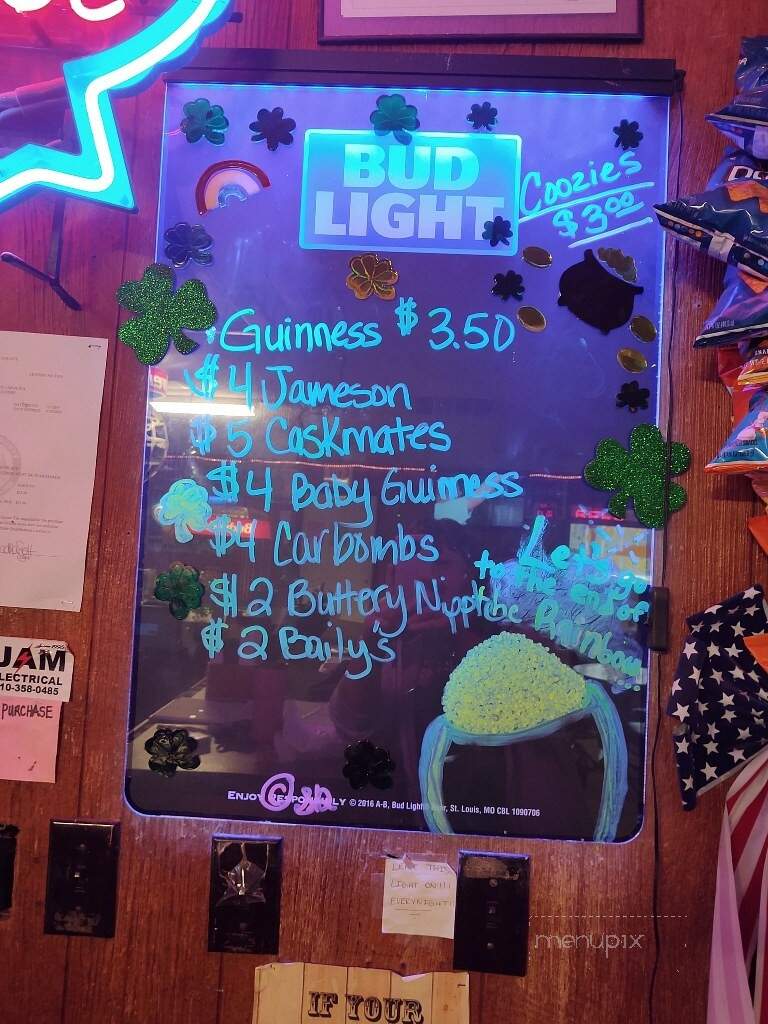 BUD
LIGHT
Coozies
$3.00
Guinness $3.50
$4 Jameson
$5 Caskmates
$4 Baby Guinness
$4 Carbombs
$2 Buttery Nipple
$2 Baily's
Let's go
to the end of
the Rainbow
ENJOY RESPONSIBLY © 2016 A-B, Bud Light® Beer, St. Louis, MO CBL 1090706
JAM
ELECTRICAL
10-358-0485
PURCHASE
LEAVE THIS
LIGHT ON!!!
EVERYNIGHT!
menupix
IF YOUR